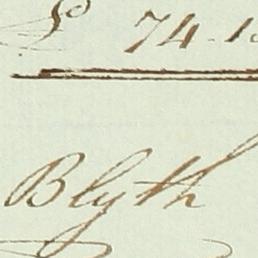 74.1
Blyth